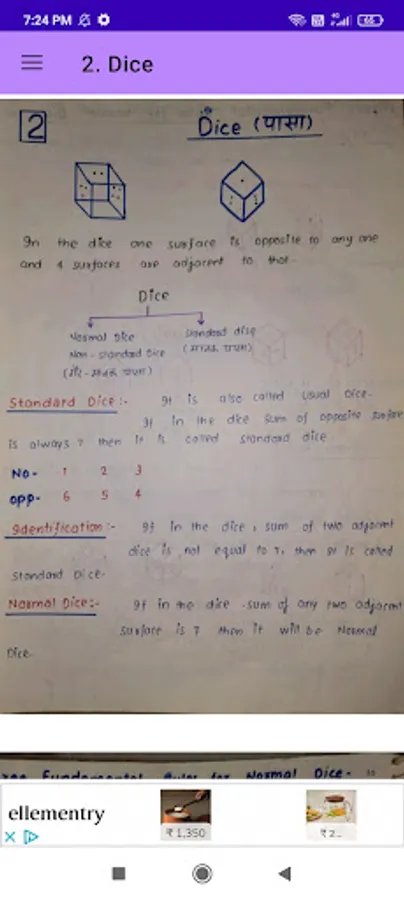 7:24 PM
65
2. Dice
2
Dice (पासा)
In the dice one surface is opposite to any one
and 4 surfaces are adjacent to that.
Dice
Normal Dice
Standard dise
Non-standard Dice
(मानक पासा)
(गैर-मानक पासा)
Standard Dice:- It is also called Usual Dice.
If in the dice sum of opposite surface
is always 7 then it is called standard dice
No- 1 2 3
opp- 6 5 4
Identification:- If in the dice, sum of two adjacent
dice is not equal to 7, then it is called
Standard Dice-
Normal Dice:- If in the dice sum of any two adjacent
surface is 7 then it will be Normal
Dice.
Fundamental Rules for Normal Dice-
ellementry
₹ 1,350
₹ 2...